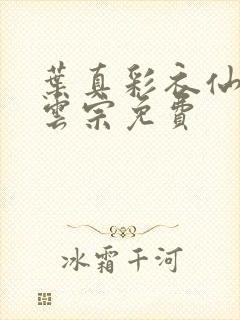 葉真彩衣仙
雲宗免費
冰霜千河